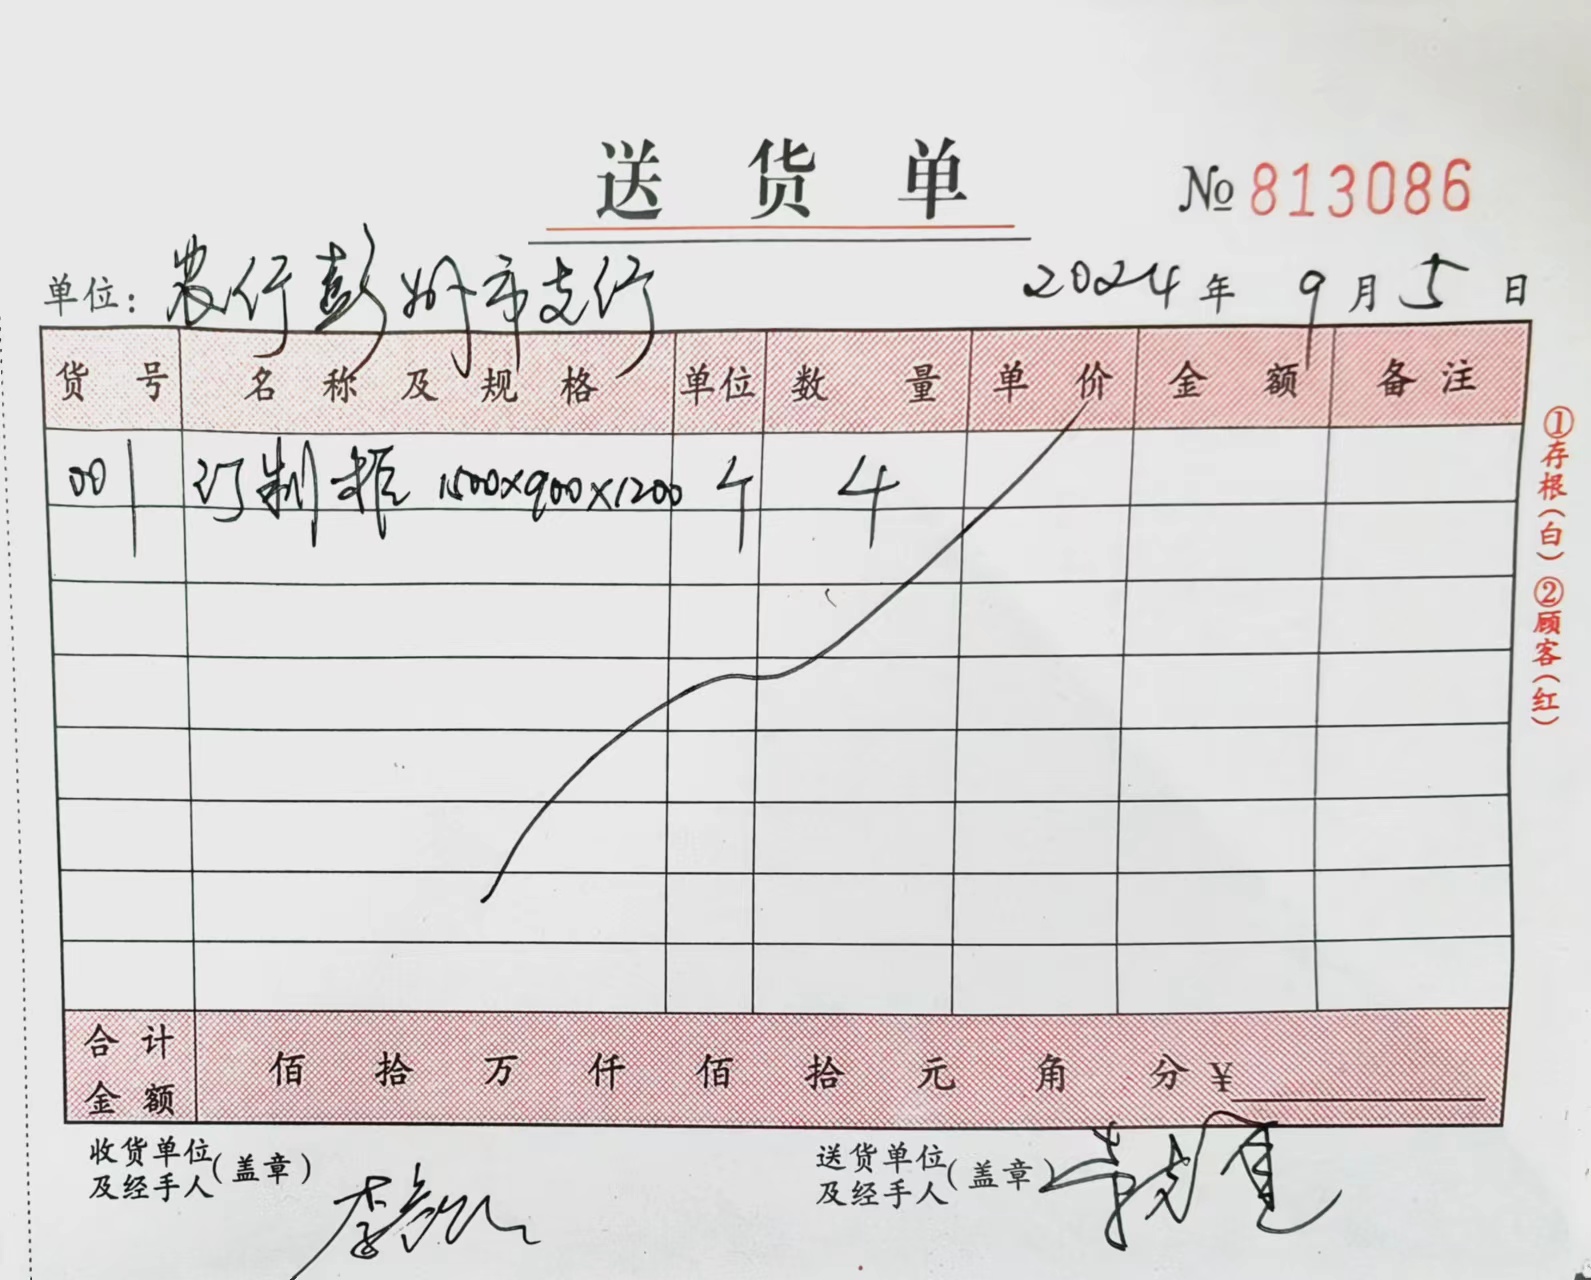 送货单
№813086
单位：农行彭州市支行 2024年9月5日
货号 名称及规格 单位 数量 单价 金额 备注
001 订制柜 1500×900×1200 个 4
合计金额 佰 拾 万 仟 佰 拾 元 角 分 ¥
收货单位及经手人（盖章）
送货单位及经手人（盖章）
①存根（白）②顾客（红）